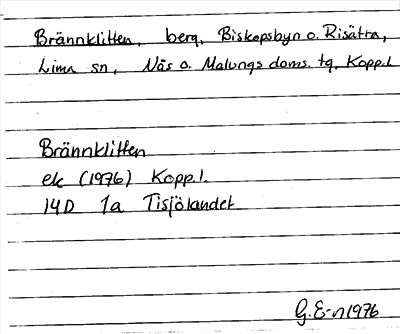 Brännklitten, berg, Biskopsbyn o. Risätra,
Lima sn, Nås o. Malungs doms. tg, Kopp.l.
Brännklitten
ek (1976) Kopp.l.
14D 1a Tisjölandet
G.E-n 1976